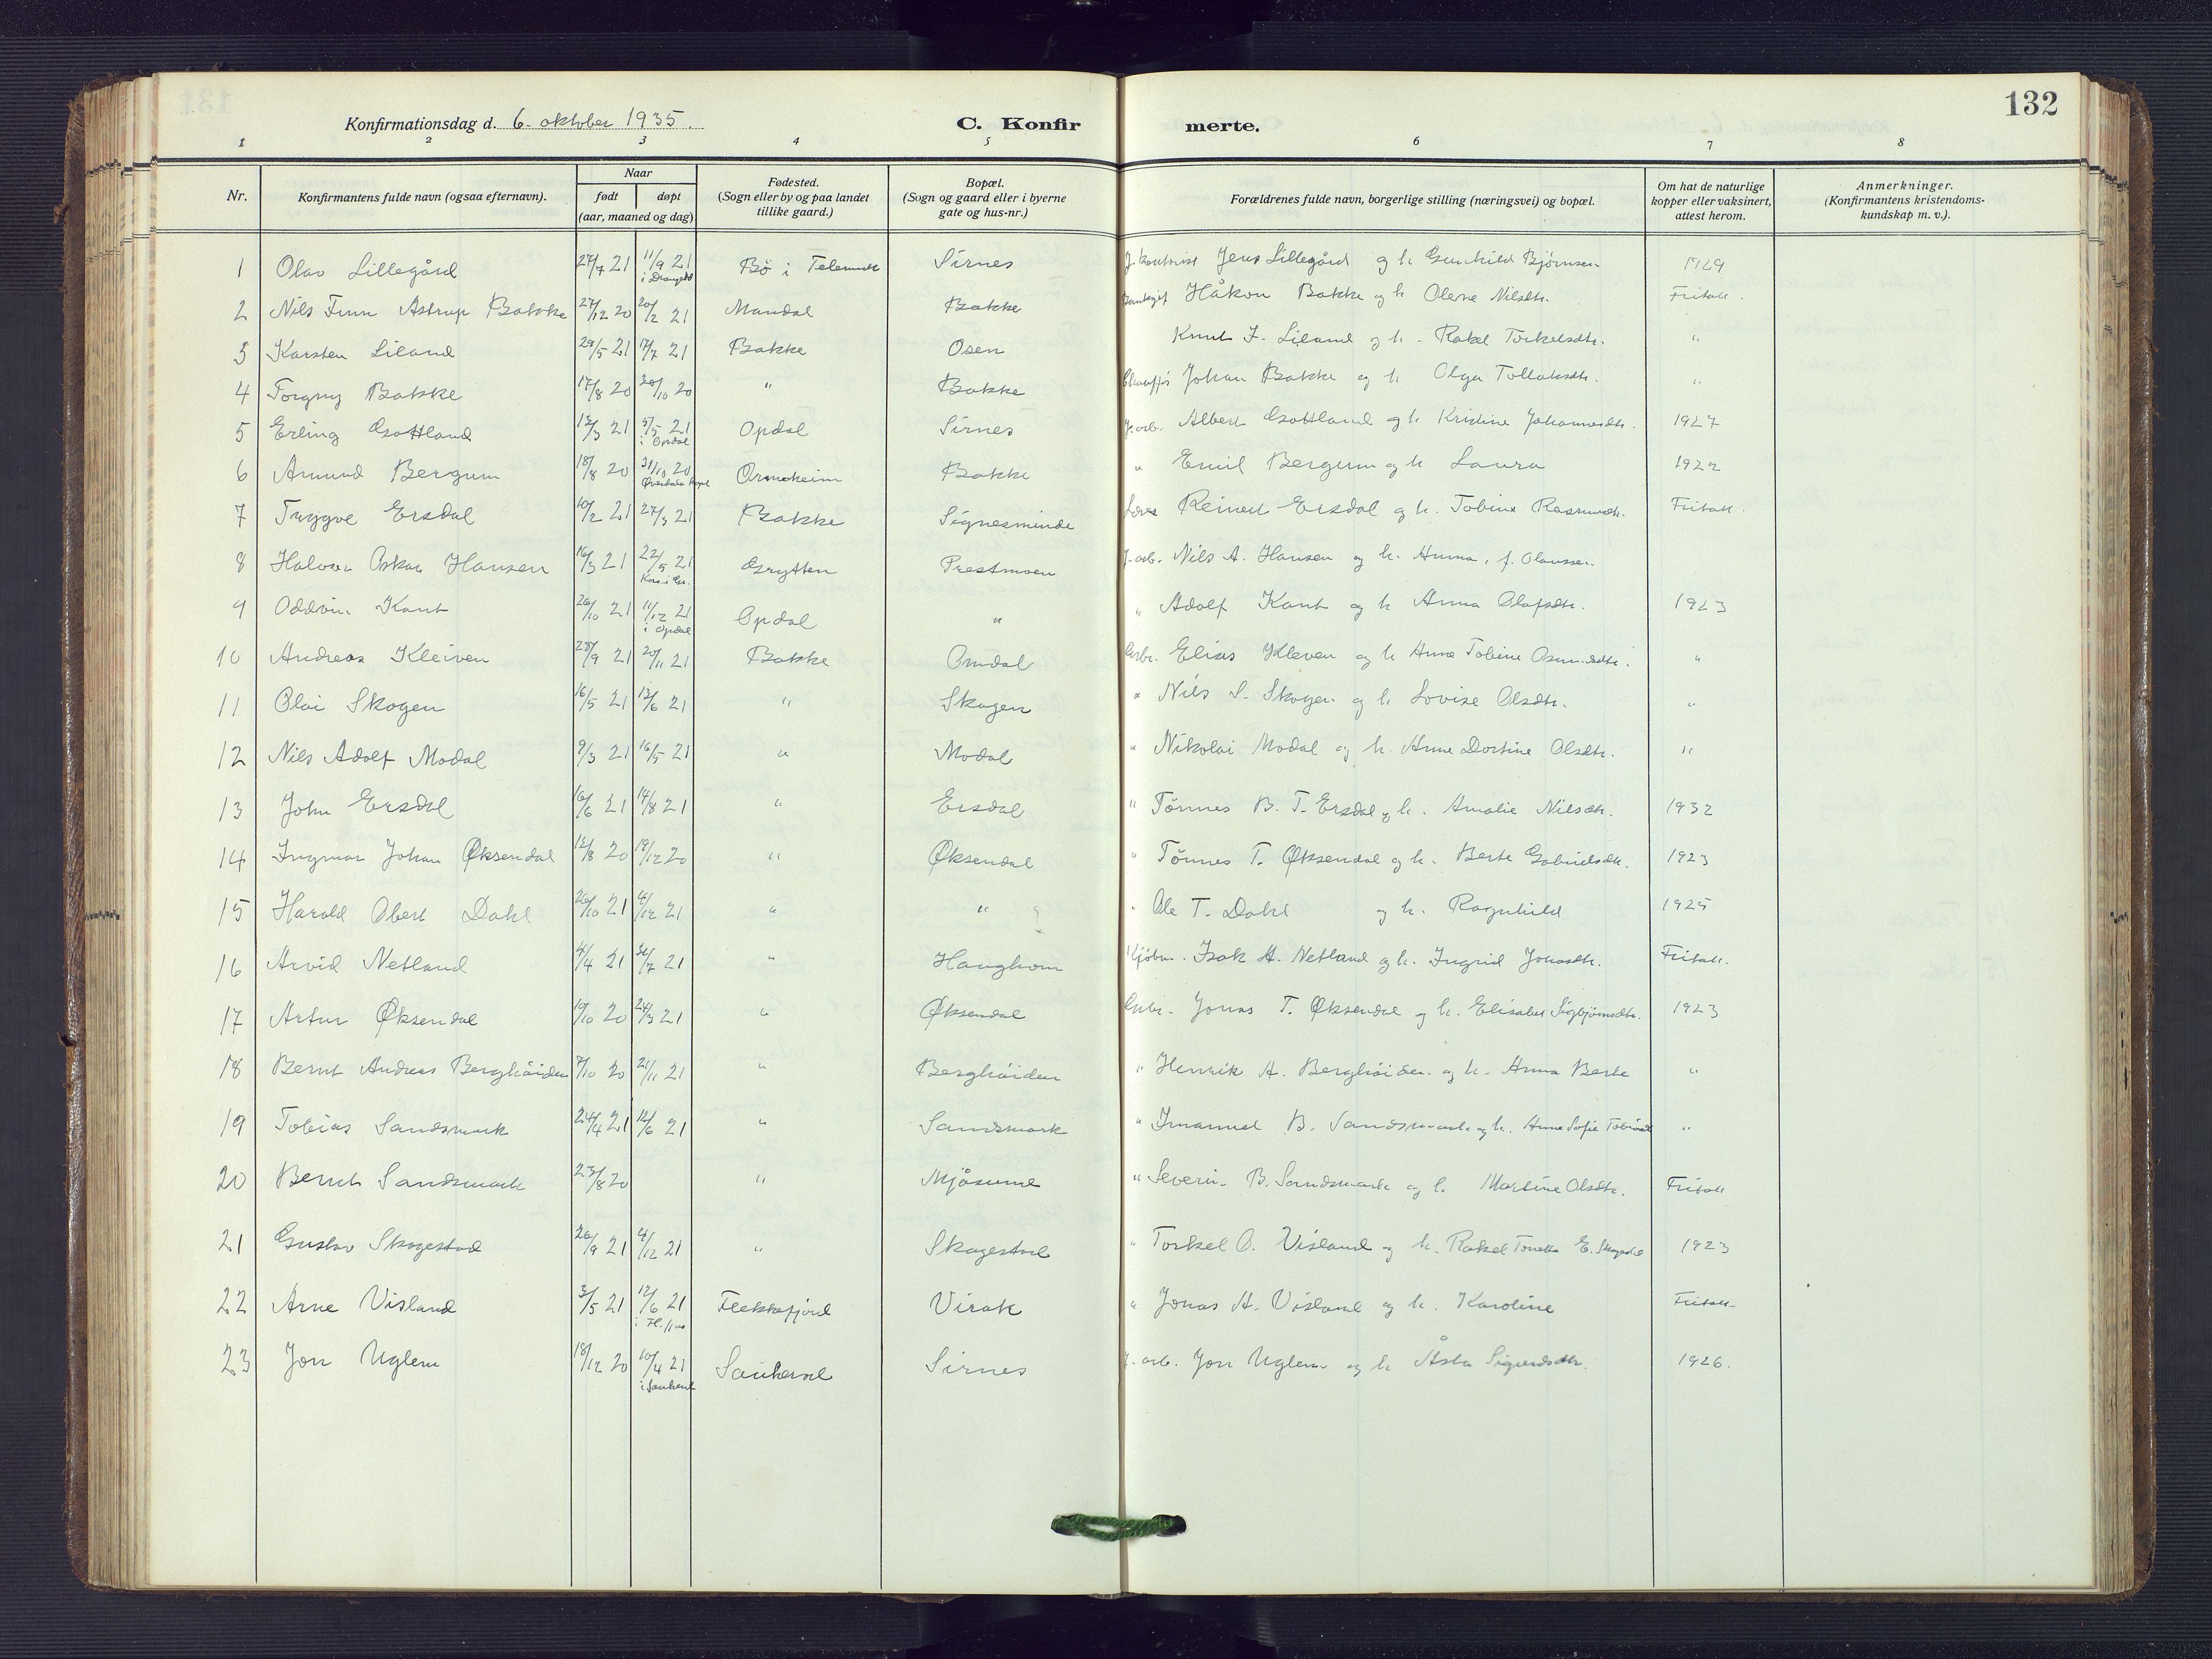 132
Konfirmationsdag d. 6. oktober 1935.
C. Konfir
merte.
1 2 3 4 5 6 7 8
Nr.
Konfirmantens fulde navn (ogsaa efternavn).
Naar
født døpt
(aar, maaned og dag)
Fødested.
(Sogn eller by og paa landet
tillike gaard.)
Bopæl.
(Sogn og gaard eller i byerne
gate og hus-nr.)
Forældrenes fulde navn, borgerlige stilling (næringsvei) og bopæl.
Om hat de naturlige
kopper eller vaksinert,
attest herom.
Anmerkninger.
(Konfirmantens kristendoms-
kundskap m. v.).
1 Olav Lillegård 27/7 21 11/9 21 Bö i Telemark Sirnes Jens Lillegård og h. Gunhild Björnsen 1929
i Drangedal
2 Nils Finn Astrup Bakke 27/12 20 20/2 21 Mandal Bakke Håkon Bakke og h. Olene Nilsdtr. Fritatt.
3 Karsten Liland 29/5 21 17/7 21 Bakke Osen Knut I. Liland og h. Rakel Torkelsdtr. "
4 Torgny Bakke 17/8 20 20/10 20 " Bakke Johan Bakke og h. Olga Tollaksdtr. "
5 Erling Gottland 12/3 21 5/5 21 Opdal Sirnes J. arb. Albert Gottland og h. Kristine Johannesdtr. 1927
i Opdal
6 Amund Bergum 18/8 20 31/10 20 Ormeheim Bakke " Emil Bergum og h. Laura 1922
7 Tryggve Ersdal 10/2 21 27/3 21 Bakke Signesminde Reinert Ersdal og h. Tobine Rasmusdtr. Fritatt.
8 Halvor Oskar Hansen 16/3 21 22/5 21 Grytten Prestmoen J. arb. Nils A. Hansen og h. Anna, f. Olaussen.
9 Oddvin Kant 26/10 21 11/12 21 Opdal " " Adolf Kant og h. Anna Olafsdtr. 1923
i Opdal
10 Andreas Kleiven 28/9 21 20/11 21 Bakke Omdal Elias Kleven og h. Anne Tobine "
11 Olai Skogen 16/5 21 12/6 21 " Skogen " Nils S. Skogen og h. Lovise Olsdtr. "
12 Nils Adolf Modal 9/3 21 16/5 21 " Modal " Nikolai Modal og h. Anne Dortine Olsdtr. "
13 John Ersdal 16/6 21 14/8 21 " Ersdal " Tönnes B. T. Ersdal og h. Amalie Nilsdtr. 1932
14 Ingmar Johan Øksendal 12/8 20 19/12 20 " Øksendal " Tönnes T. Øksendal og h. Berte Gabrielsdtr. 1923
15 Harald Obert Dahl 26/10 21 4/12 21 " " " Ole T. Dahl og h. Ragnhild 1925
16 Arvid Netland 4/4 21 7 21 " Haughom Kjöbm. Isak A. Netland og h. Ingrid Jonasdtr. Fritatt.
17 Artur Øksendal 19/10 20 24/3 21 " Øksendal Jonas T. Øksendal og h. Elisabet Sigbjörnsdtr. 1923
18 Bernt Andreas Berghöiden 7/10 20 21/11 21 " Berghöiden " Henrik A. Berghöiden og h. Anna Berte "
19 Tobias Sandsmark 24/4 21 12/6 21 " Sandsmark " Imanuel B. Sandsmark og h. Anne Sofie "
20 Bernt Sandsmark 23/8 20 " Mjåsund " Severin B. Sandsmark og h. Martine Olsdtr. Fritatt
21 Gustav Skogestad 26/9 21 4/12 21 " Skogestad " Torkel O. Visland og h. Rakel Tonette E. Skogestad 1923
22 Arne Visland 3/5 21 12/6 21 Flekkefjord Virak " Jonas A. Visland og h. Karoline Fritatt.
23 Jon Uglem 18/12 20 10/4 21 Sauherad Sirnes J. arb. Jon Uglem og h. Åsta Sigurdsdtr. 1926.
i Sauherad